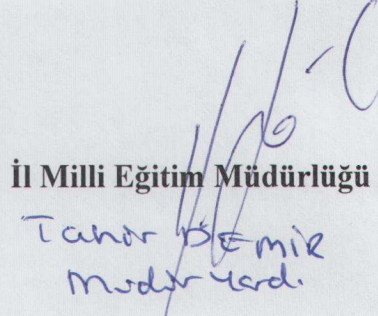 İl Milli Eğitim Müdürlüğü
Tahir DEMİR
Müdür Yard.